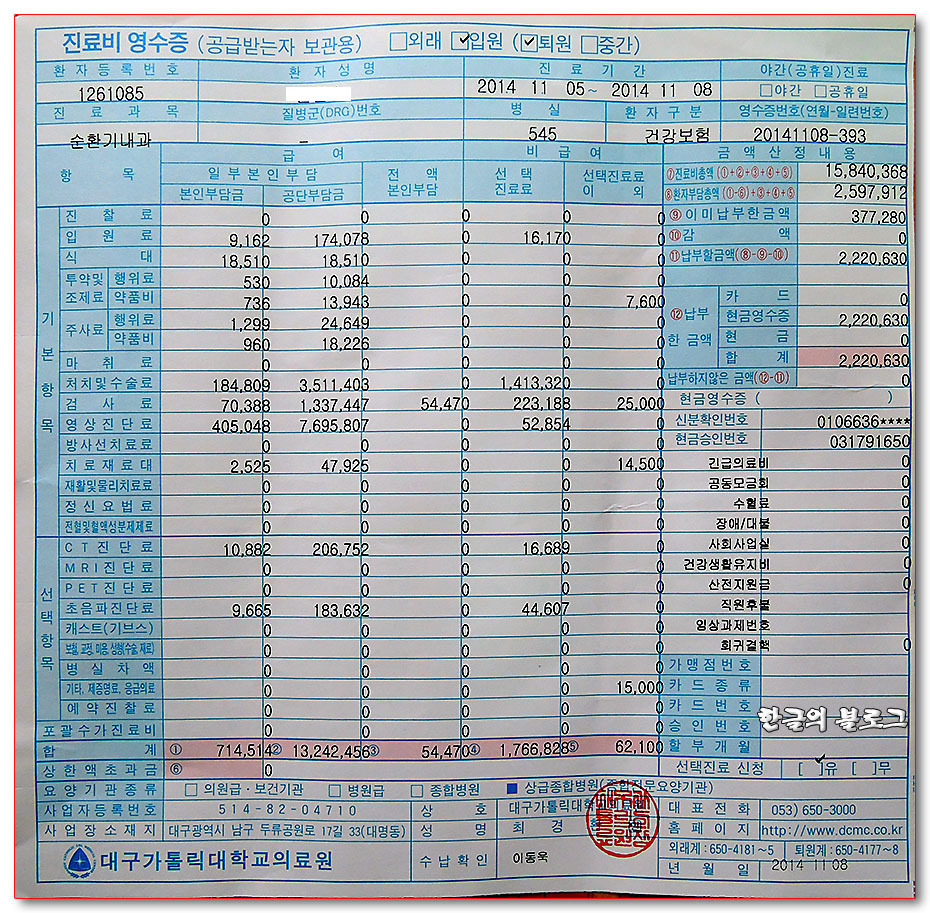 진료비 영수증 (공급받는자 보관용) □외래 ☑입원 (☑퇴원 □중간)
환자등록번호 환자성명 진료기간 야간(공휴일)진료
1261085 2014 11 05~ 2014 11 08 □야간 □공휴일
진료과목 질병군(DRG)번호 병실 환자구분 영수증번호(연월-일련번호)
순환기내과 - 545 건강보험 20141108-393
항목 급여 비급여 금액산정내용
일부본인부담 전액본인부담 선택진료료 선택진료료이외
본인부담금 공단부담금
⑦진료비총액 (①+②+③+④+⑤) 15,840,368
⑧환자부담총액 (①-⑥)+③+④+⑤ 2,597,912
⑨이미납부한금액 377,280
⑩감액 0
⑪납부할금액(⑧-⑨-⑩) 2,220,630
⑫납부한 금액
카드 0
현금영수증 2,220,630
현금 0
합계 2,220,630
납부하지않은 금액(⑫-⑪) 0
현금영수증 ( )
신분확인번호 0106636****
현금승인번호 031791650
긴급의료비 0
공동모금회 0
수혈료 0
장애/대불 0
사회사업실 0
건강생활유지비 0
산전지원금 0
직원후불
임상과제번호
회귀결핵 0
가맹점번호
카드종류
카드번호
승인번호
할부개월
선택진료 신청 [✓]유 [ ]무
기본항목
진찰료 0 0 0 0 0
입원료 9,162 174,078 0 16,170 0
식대 18,510 18,510 0 0 0
투약및조제료 행위료 530 10,084 0 0 0
약품비 736 13,943 0 0 7,600
주사료 행위료 1,299 24,649 0 0 0
약품비 960 18,226 0 0 0
마취료 0 0 0 0 0
처치및수술료 184,809 3,511,403 0 1,413,320 0
검사료 70,388 1,337,447 54,470 223,188 25,000
영상진단료 405,048 7,695,807 0 52,854 0
방사선치료료 0 0 0 0 0
치료재료대 2,525 47,925 0 0 14,500
재활및물리치료료 0 0 0 0 0
정신요법료 0 0 0 0 0
전혈및혈액성분제제료 0 0 0 0 0
선택항목
CT진단료 10,882 206,752 0 16,689 0
MRI진단료 0 0 0 0 0
PET진단료 0 0 0 0 0
초음파진단료 9,665 183,632 0 44,607 0
캐스트(기브스) 0 0 0 0 0
보철,교정,미용 성형(수술 재료) 0 0 0 0 0
병실차액 0 0 0 0 0
기타, 제증명료, 응급의료 0 0 0 0 15,000
예약진찰료 0 0 0 0 0
포괄수가진료비 0 0 0 0 0
합계 ① 714,514 ② 13,242,456 ③ 54,470 ④ 1,766,828 ⑤ 62,100
상한액초과금 ⑥ 0
요양기관종류 □의원급·보건기관 □병원급 □종합병원 ■상급종합병원(종합전문요양기관)
사업자등록번호 514-82-04710 상호 대구가톨릭대학 대표전화 053) 650-3000
사업장소재지 대구광역시 남구 두류공원로 17길 33(대명동) 성명 최경 홈페이지 http://www.dcmc.co.kr
외래계:650-4181~5 퇴원계:650-4177~8
대구가톨릭대학교의료원 수납확인 이동욱 년월일 2014 11 08
한글의 블로그